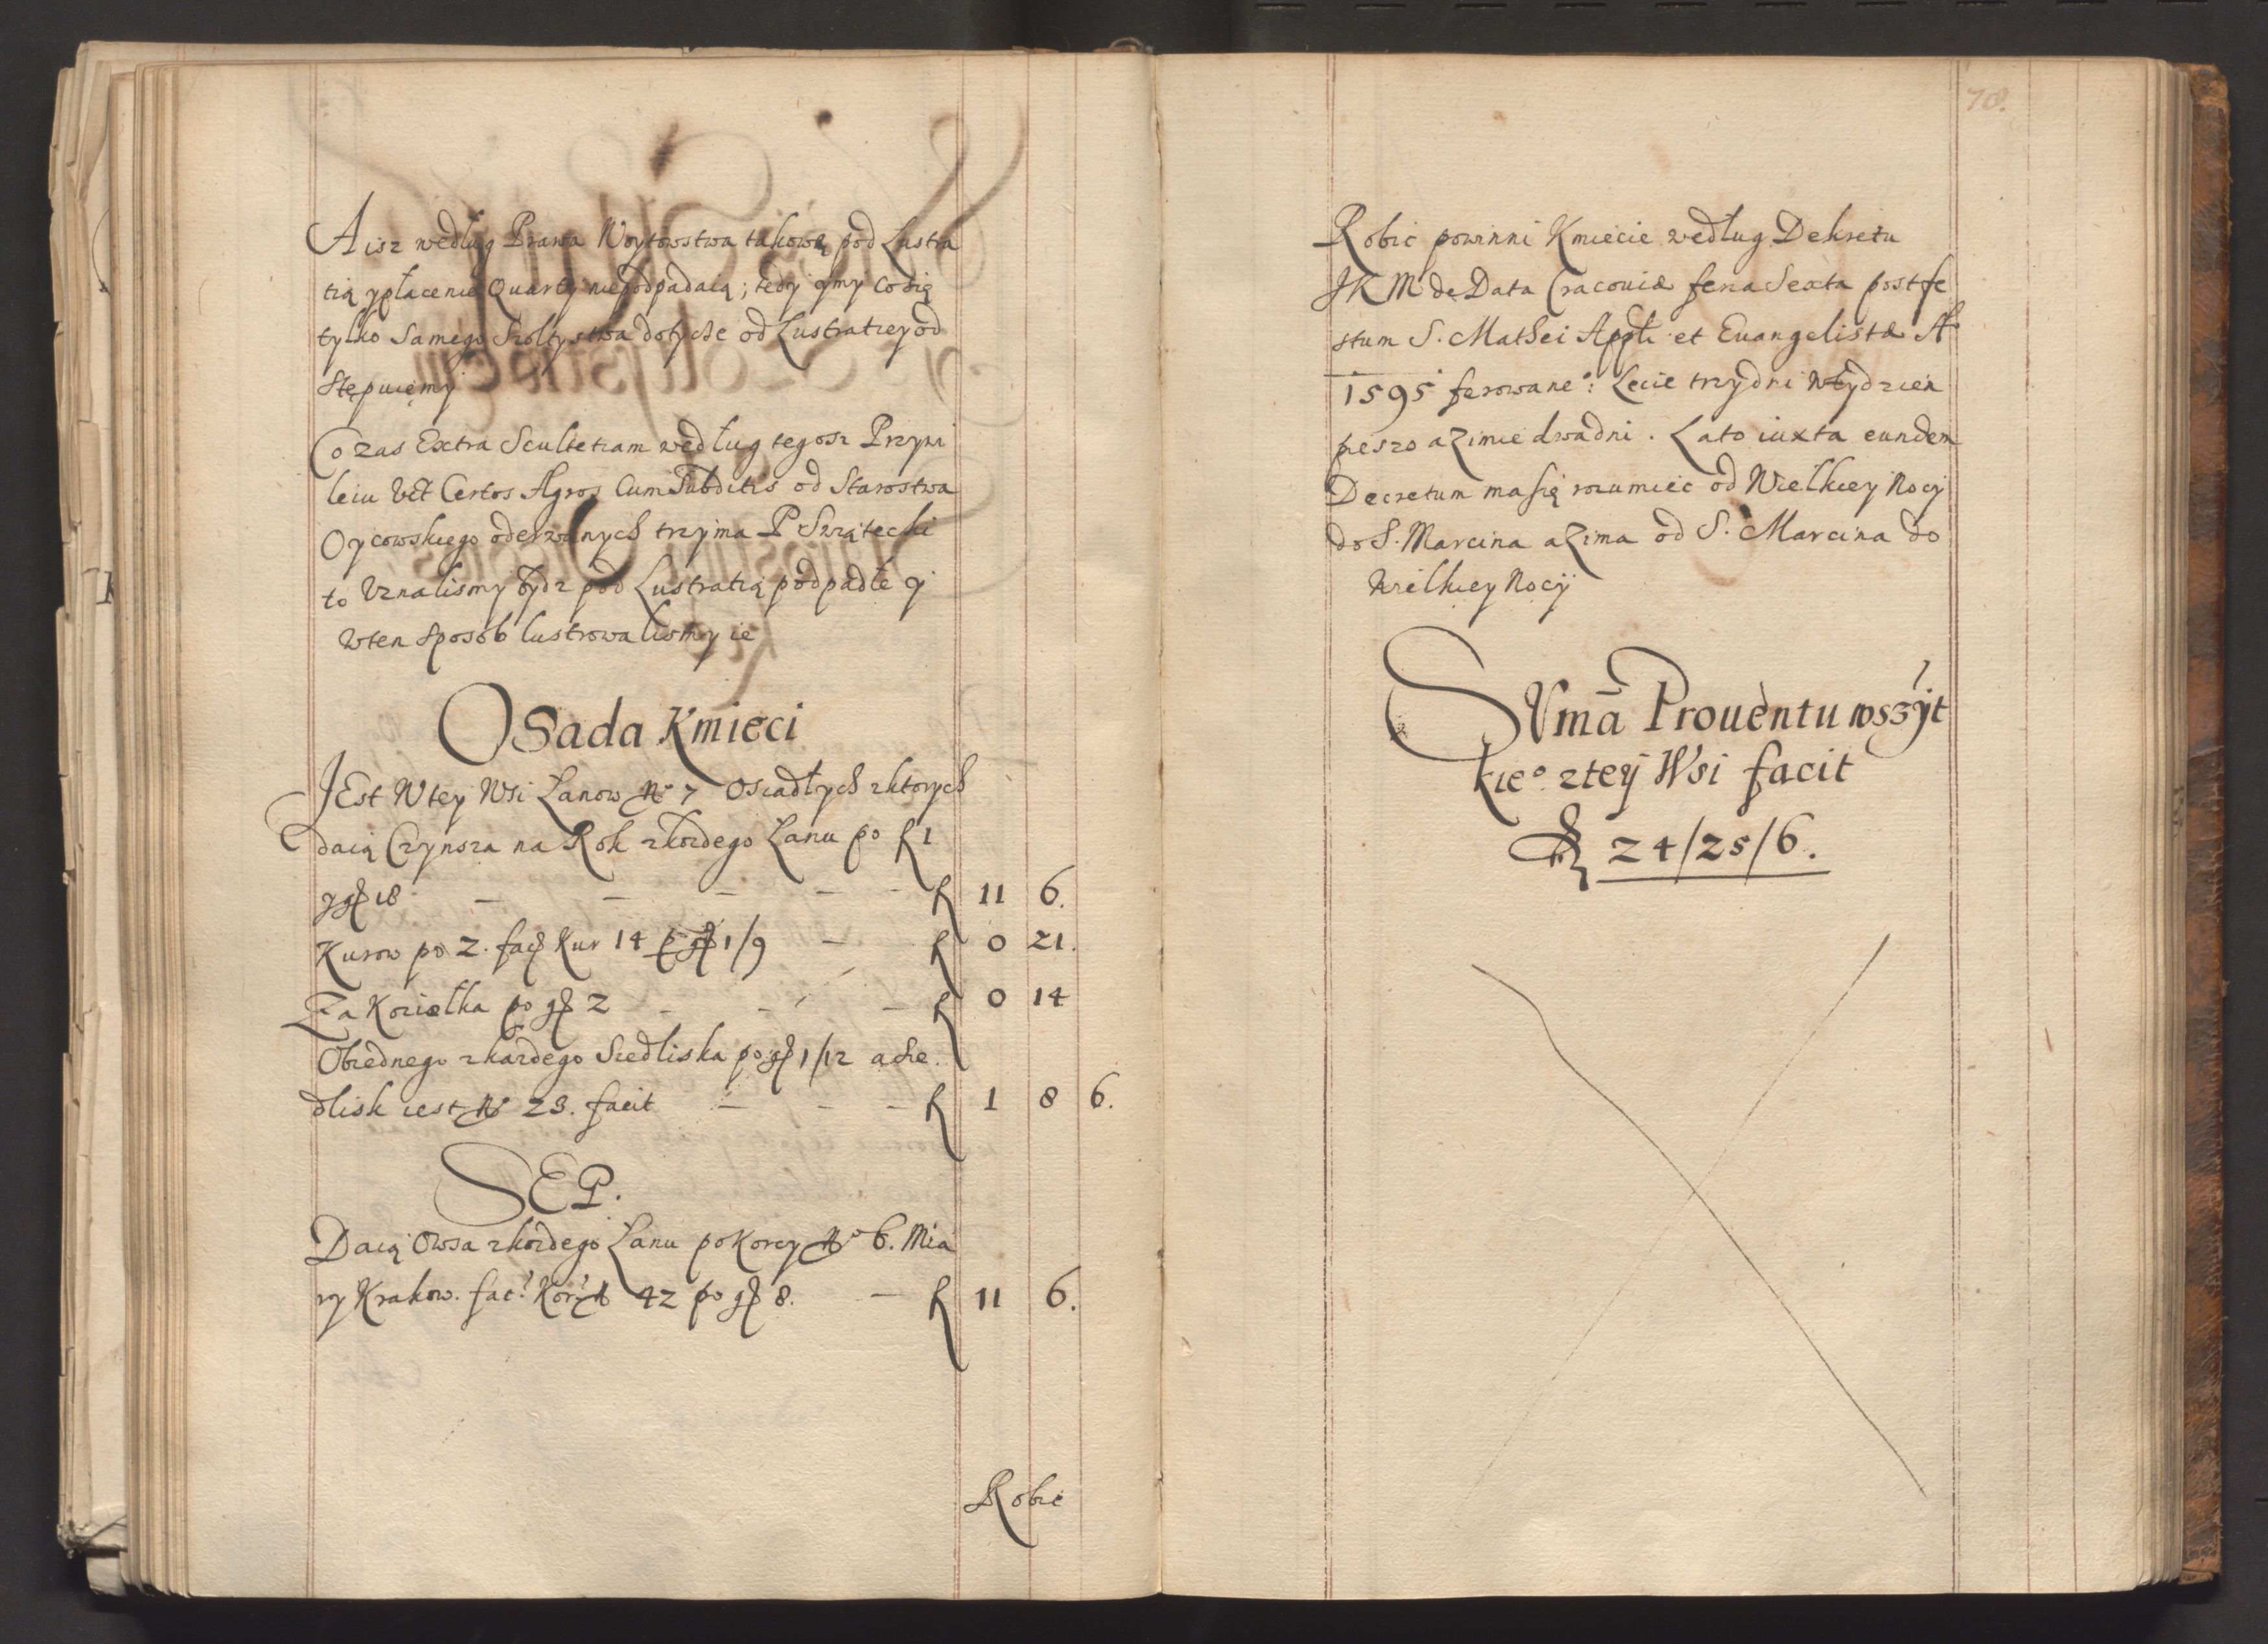 A isz według Prawa Woytowstwa takowe pod Lustra
tią y płacenie Quarty nie podpadaią; tedy y my co się
tylko Samego Szoltystwa dotycze od Lustratiey od
stępuiemy
Co zas Extra Scultetiam według tegosz Przywi
leiu Vt Certos Agros Cum Subditis od Starostwa
Oycowskiego oderwanych trzyma P Swiątecki
to Vznalismy bydz pod Lustratią podpadłe y
w ten sposob lustrowalismy ie
Osada Kmieci
JEst W tey Wsi Łanow No 7 Osiadłych z ktorych
daią Czynsza na Rok z kozdego Łanu po f 1
y gr 18 — — — — — f 11 6.
Kurow po 2. facit Kur 14 po gr 1/9 — f 0 21.
Za Koziołka po gr 2 — — — f 0 14
Obiednego z kazdego Siedliska po gr 1/12 a Sie
dlisk iest No 23. facit — — — f 1 8 6.
SEP.
Daią Owsa z kozdego Łanu po Korcy No 6. Mia
ry Krakow. fac: Kor: No 42 po gr 8. — f 11 6.
Robic
78.
Robic powinni Kmiecie według Dekretu
JKM de Data Cracouiæ feria Sexta post fe
stum S. Mathei Appli et Euangelistæ Ao
1595 ferowaneo: Lecie trzy dni w tydzien
pieszo a Zimie dwa dni. Lato iuxta eundem
Decretum ma się rozumiec od Wielkiey Nocy
do S. Marcina a Zima od S. Marcina do
Wielkiey Nocy
SVma Prouentu wszyt
kieo z tey Wsi facit
f 24/25/6.